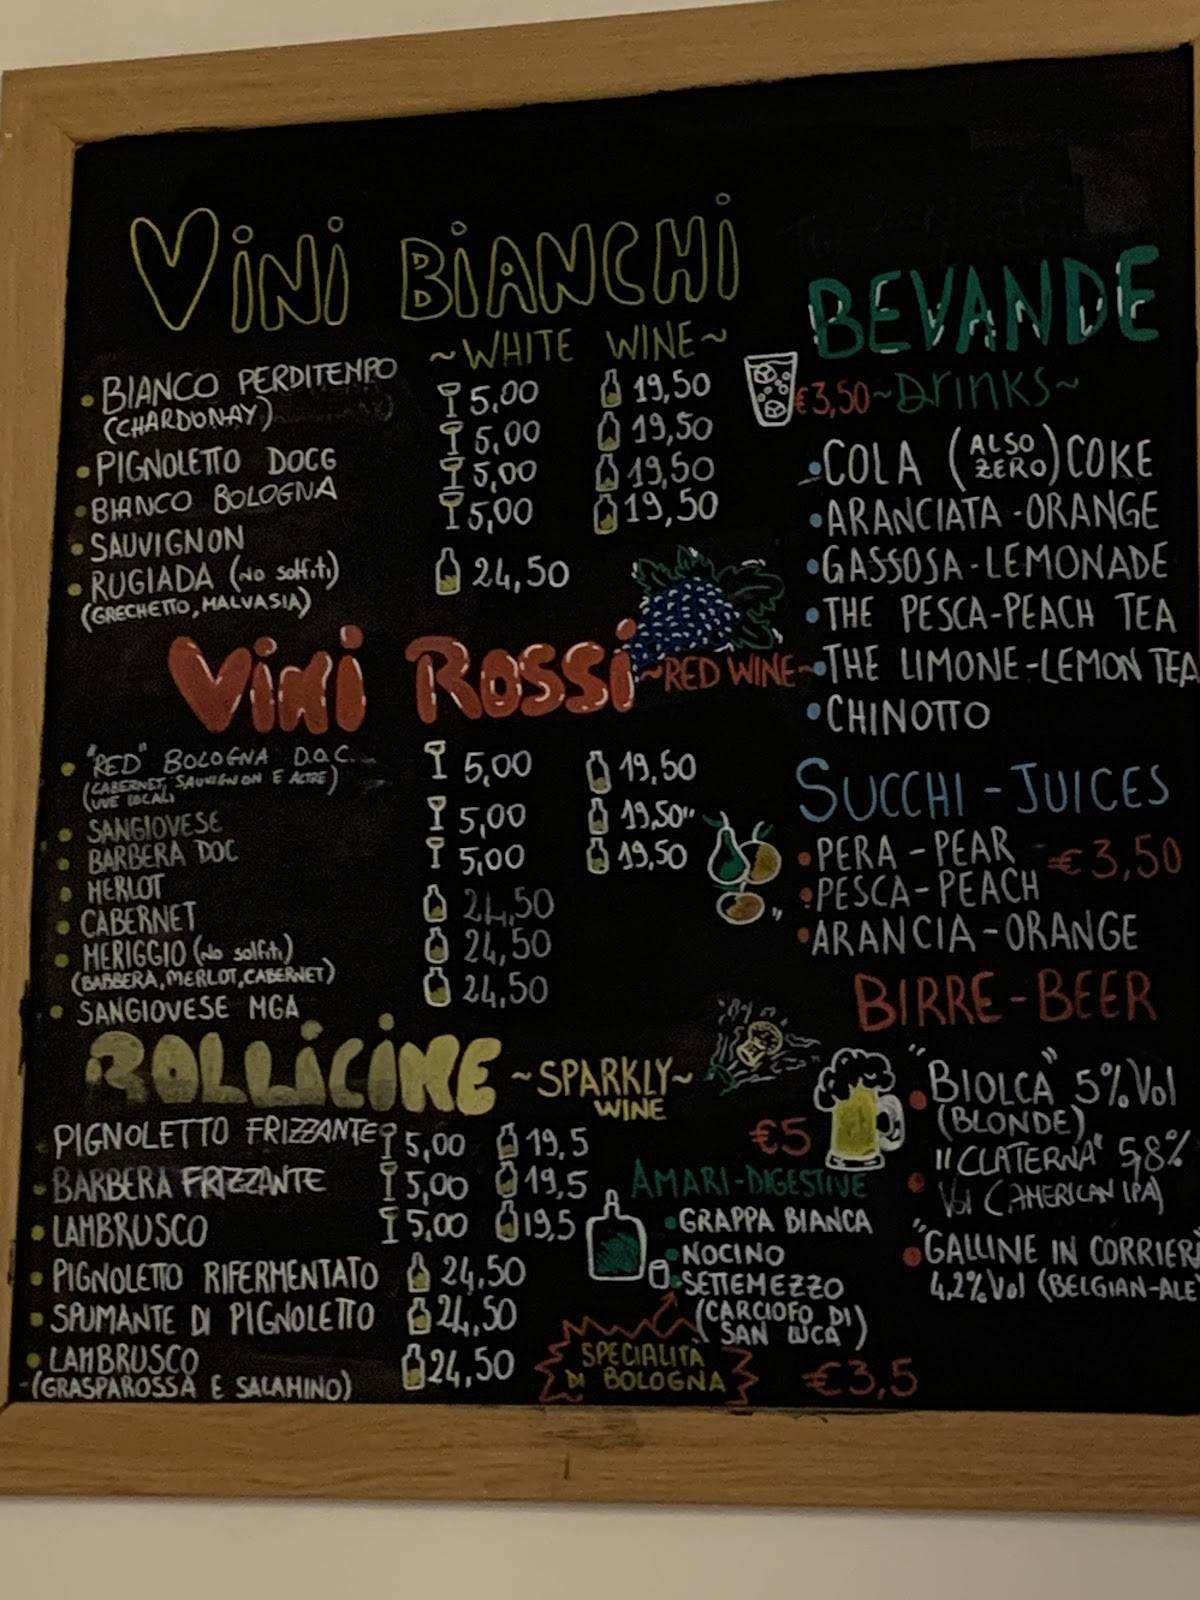 VINI BIANCHI
~WHITE WINE~
BIANCO PERDITEMPO 5,00 19,50
(CHARDONAY)
PIGNOLETTO DOCG 5,00 19,50
BIANCO BOLOGNA 5,00 19,50
SAUVIGNON 5,00 19,50
RUGIADA (No solfiti) 24,50
(GRECHETTO, MALVASIA)
VINI ROSSI ~RED WINE~
"RED" BOLOGNA D.O.C. 5,00 19,50
(CABERNET, SAUVIGNON E ALTRE)
UVE LOCALI
SANGIOVESE 5,00 19,50"
BARBERA DOC 5,00 19,50
MERLOT
CABERNET 24,50
MERIGGIO (No solfiti) 24,50
(BARBERA, MERLOT, CABERNET)
SANGIOVESE MGA 24,50
BOLLICINE ~SPARKLY~
WINE
PIGNOLETTO FRIZZANTE 5,00 19,5
BARBERA FRIZZANTE 5,00 19,5
LAMBRUSCO 5,00 19,5
PIGNOLETTO RIFERMENTATO 24,50
SPUMANTE DI PIGNOLETTO 24,50
LAMBRUSCO 24,50
(GRASPAROSSA E SALAMINO)
BEVANDE
€3,50 ~DRINKS~
COLA (ALSO ZERO) COKE
ARANCIATA - ORANGE
GASSOSA - LEMONADE
THE PESCA - PEACH TEA
THE LIMONE - LEMON TEA
CHINOTTO
SUCCHI - JUICES
PERA - PEAR €3,50
PESCA - PEACH
ARANCIA - ORANGE
BIRRE - BEER
€5
"BIOLCA" 5% Vol
(BLONDE)
"CLATERNA" 5,8%
Vol (AMERICAN IPA)
"GALLINE IN CORRIER
4,2% Vol (BELGIAN-ALE
AMARI-DIGESTIVE
GRAPPA BIANCA
NOCINO
SETTEMEZZO
(CARCIOFO DI
SAN LUCA)
SPECIALITÀ
DI BOLOGNA
€3,5